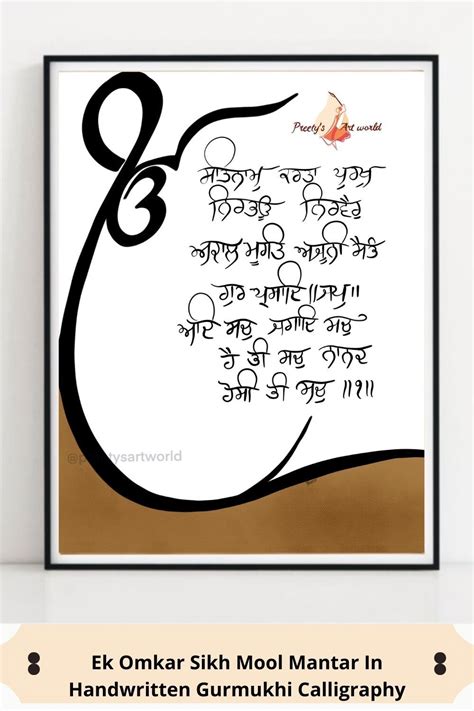 Preety's Art world
ੴ
ਸਤਿਨਾਮੁ ਕਰਤਾ ਪੁਰਖੁ
ਨਿਰਭਉ ਨਿਰਵੈਰੁ
ਅਕਾਲ ਮੂਰਤਿ ਅਜੂਨੀ ਸੈਭੰ
ਗੁਰ ਪ੍ਰਸਾਦਿ ॥ਜਪੁ॥
ਆਦਿ ਸਚੁ ਜੁਗਾਦਿ ਸਚੁ
ਹੈ ਭੀ ਸਚੁ ਨਾਨਕ
ਹੋਸੀ ਭੀ ਸਚੁ ॥੧॥
@preetysartworld
Ek Omkar Sikh Mool Mantar In
Handwritten Gurmukhi Calligraphy